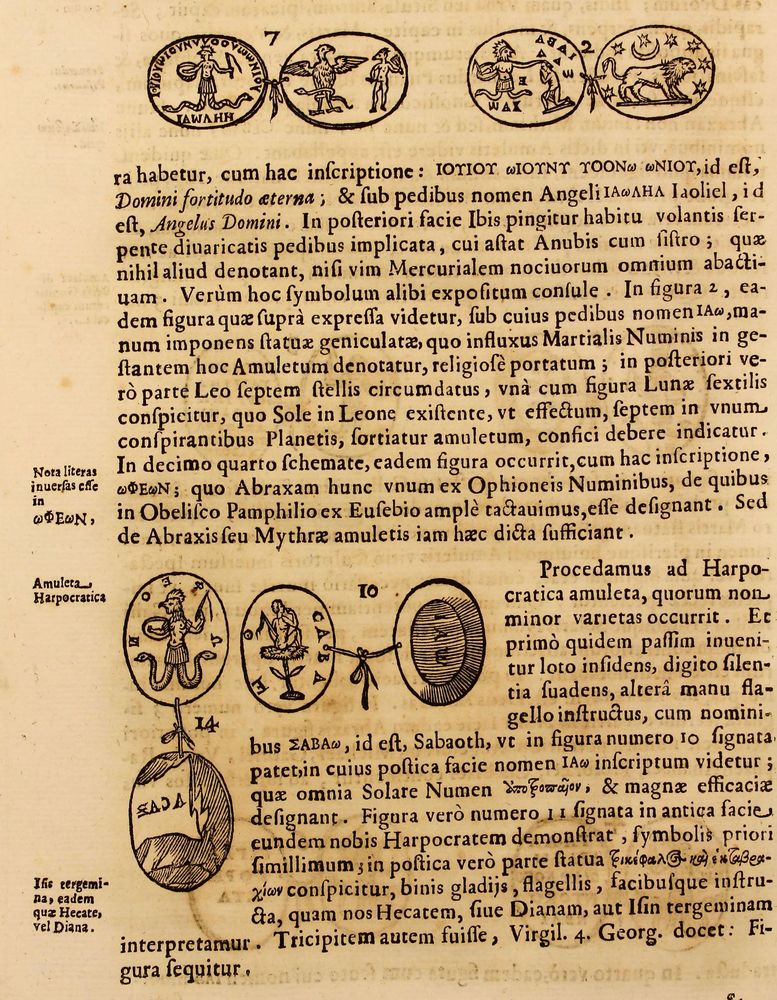 7
2
ΙΑΩΛΗΗ
ΙΑΒΑ
ΙΑΩ
ra habetur, cum hac inſcriptione: ΙΟΥΙΟΥ ωΙΟΥΝΥ ΥΟΟΝω ωΝΙΟΥ, id eſt,
Domini fortitudo æterna; & ſub pedibus nomen Angeli ΙΑωΛΗΛ Iaoliel, id
eſt, Angelus Domini. In poſteriori facie Ibis pingitur habitu volantis ſer-
pente diuaricatis pedibus implicata, cui aſtat Anubis cum ſiſtro; quæ
nihil aliud denotant, niſi vim Mercurialem nociuorum omnium abacti-
uam. Verùm hoc ſymbolum alibi expoſitum conſule. In figura 2, ea-
dem figura quæ ſuprà expreſſa videtur, ſub cuius pedibus nomen ΙΑω, ma-
num imponens ſtatuæ geniculatæ, quo influxus Martialis Numinis in ge-
ſtantem hoc Amuletum denotatur, religioſè portatum; in poſteriori ve-
rò parte Leo ſeptem ſtellis circumdatus, vnà cum figura Lunæ ſextilis
conſpicitur, quo Sole in Leone exiſtente, vt effectum, ſeptem in vnum
conſpirantibus Planetis, ſortiatur amuletum, confici debere indicatur.
In decimo quarto ſchemate, eadem figura occurrit, cum hac inſcriptione,
ωΦΕωΝ; quo Abraxam hunc vnum ex Ophioneis Numinibus, de quibus
in Obeliſco Pamphilio ex Euſebio amplè tactauimus, eſſe deſignant. Sed
de Abraxis ſeu Mythræ amuletis iam hæc dicta ſufficiant.
Nota literas
inuerſas eſſe
in
ωΦΕωΝ,
Amuleta
Harpocratica
10
CABA
ΙΑΩ
14
Procedamus ad Harpo-
cratica amuleta, quorum non
minor varietas occurrit. Et
primò quidem paſſim inueni-
tur loto inſidens, digito ſilen-
tia ſuadens, alterâ manu fla-
gello inſtructus, cum nomini-
bus ΣΑΒΑω, id eſt, Sabaoth, vt in figura numero 10 ſignata
patet, in cuius poſtica facie nomen ΙΑω inſcriptum videtur;
quæ omnia Solare Numen & magnæ efficaciæ
deſignant. Figura verò numero 11 ſignata in antica facie
eundem nobis Harpocratem demonſtrat, ſymbolis priori
ſimillimum; in poſtica verò parte ſtatua
conſpicitur, binis gladijs, flagellis, facibuſque inſtru-
cta, quam nos Hecatem, ſiue Dianam, aut Iſin tergeminam
interpretamur. Tricipitem autem fuiſſe, Virgil. 4. Georg. docet: Fi-
gura ſequitur.
Iſis tergemi-
na, eadem
quæ Hecate,
vel Diana.